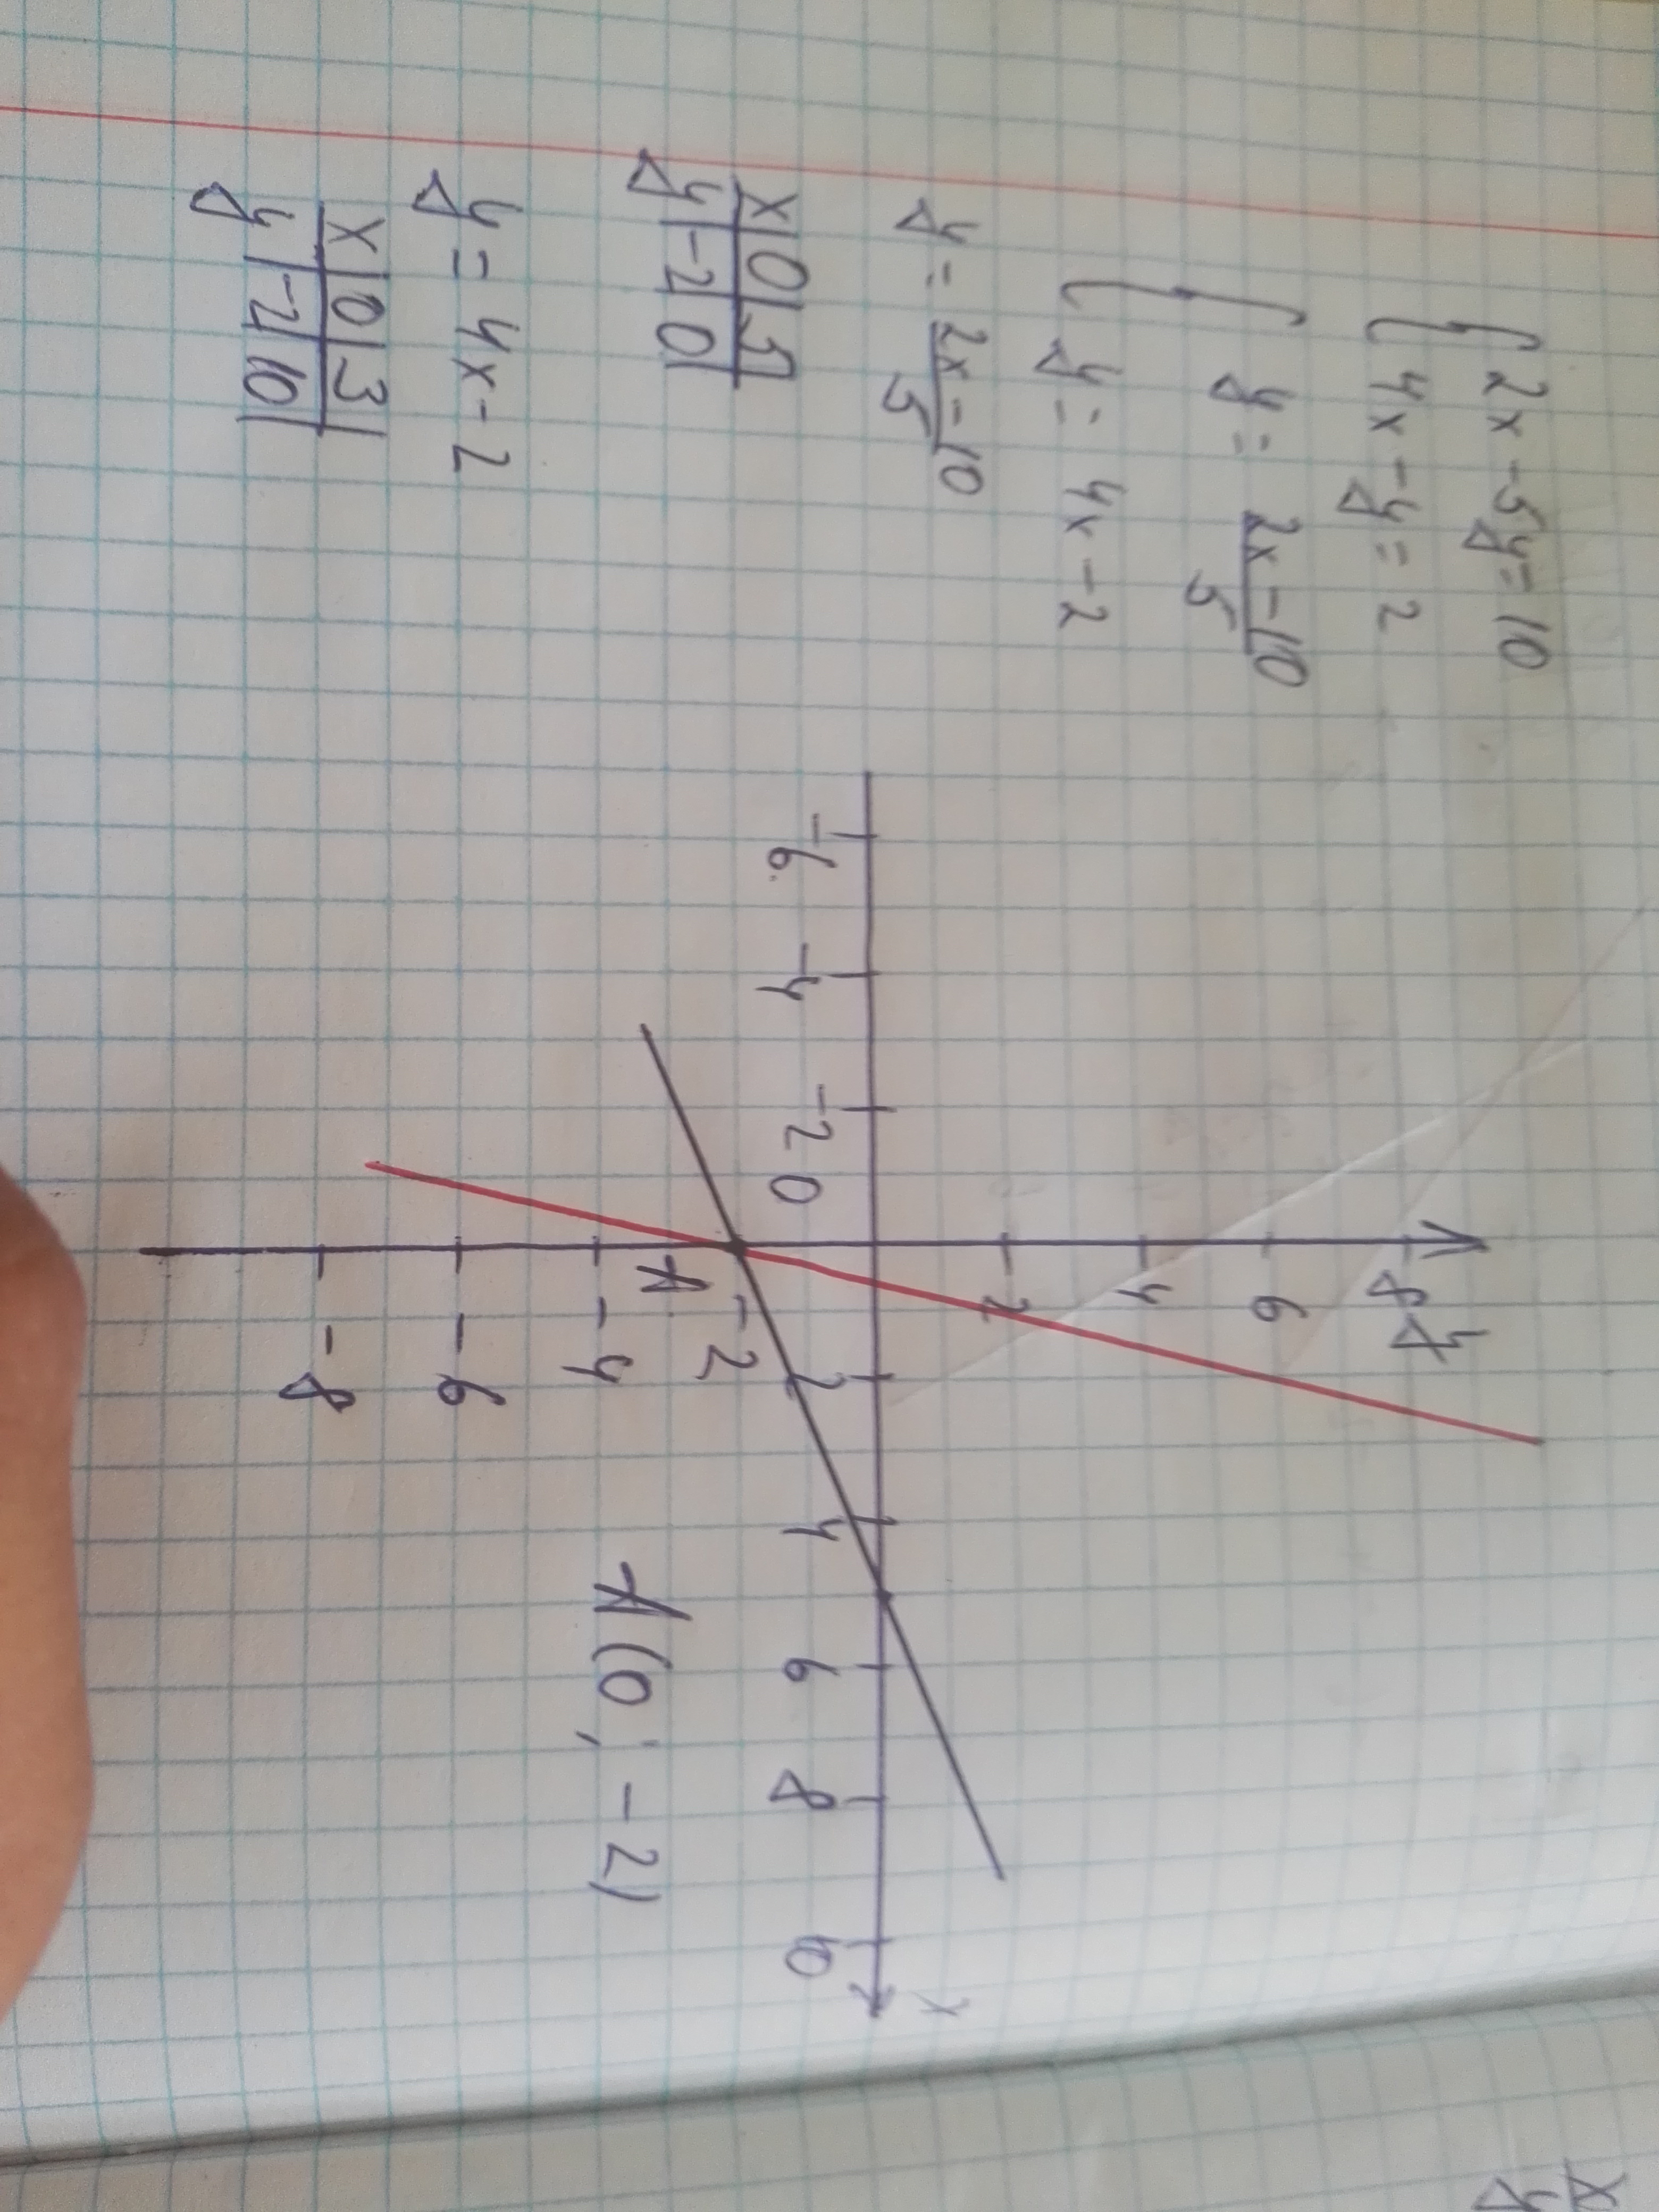 { 2x - 5y = 10
4x - y = 2
{ y = 2x - 10 / 5
y = 4x - 2
y = 2x - 10 / 5
x | 0 | 5 |
y | -2 | 0 |
y = 4x - 2
x | 0 | 3 |
y | -2 | 10 |
y
8
6
4
2
-6 -4 -2 0 2 4 6 8 10 x
-2
A
-4
-6
-8
A(0; -2)
x
y